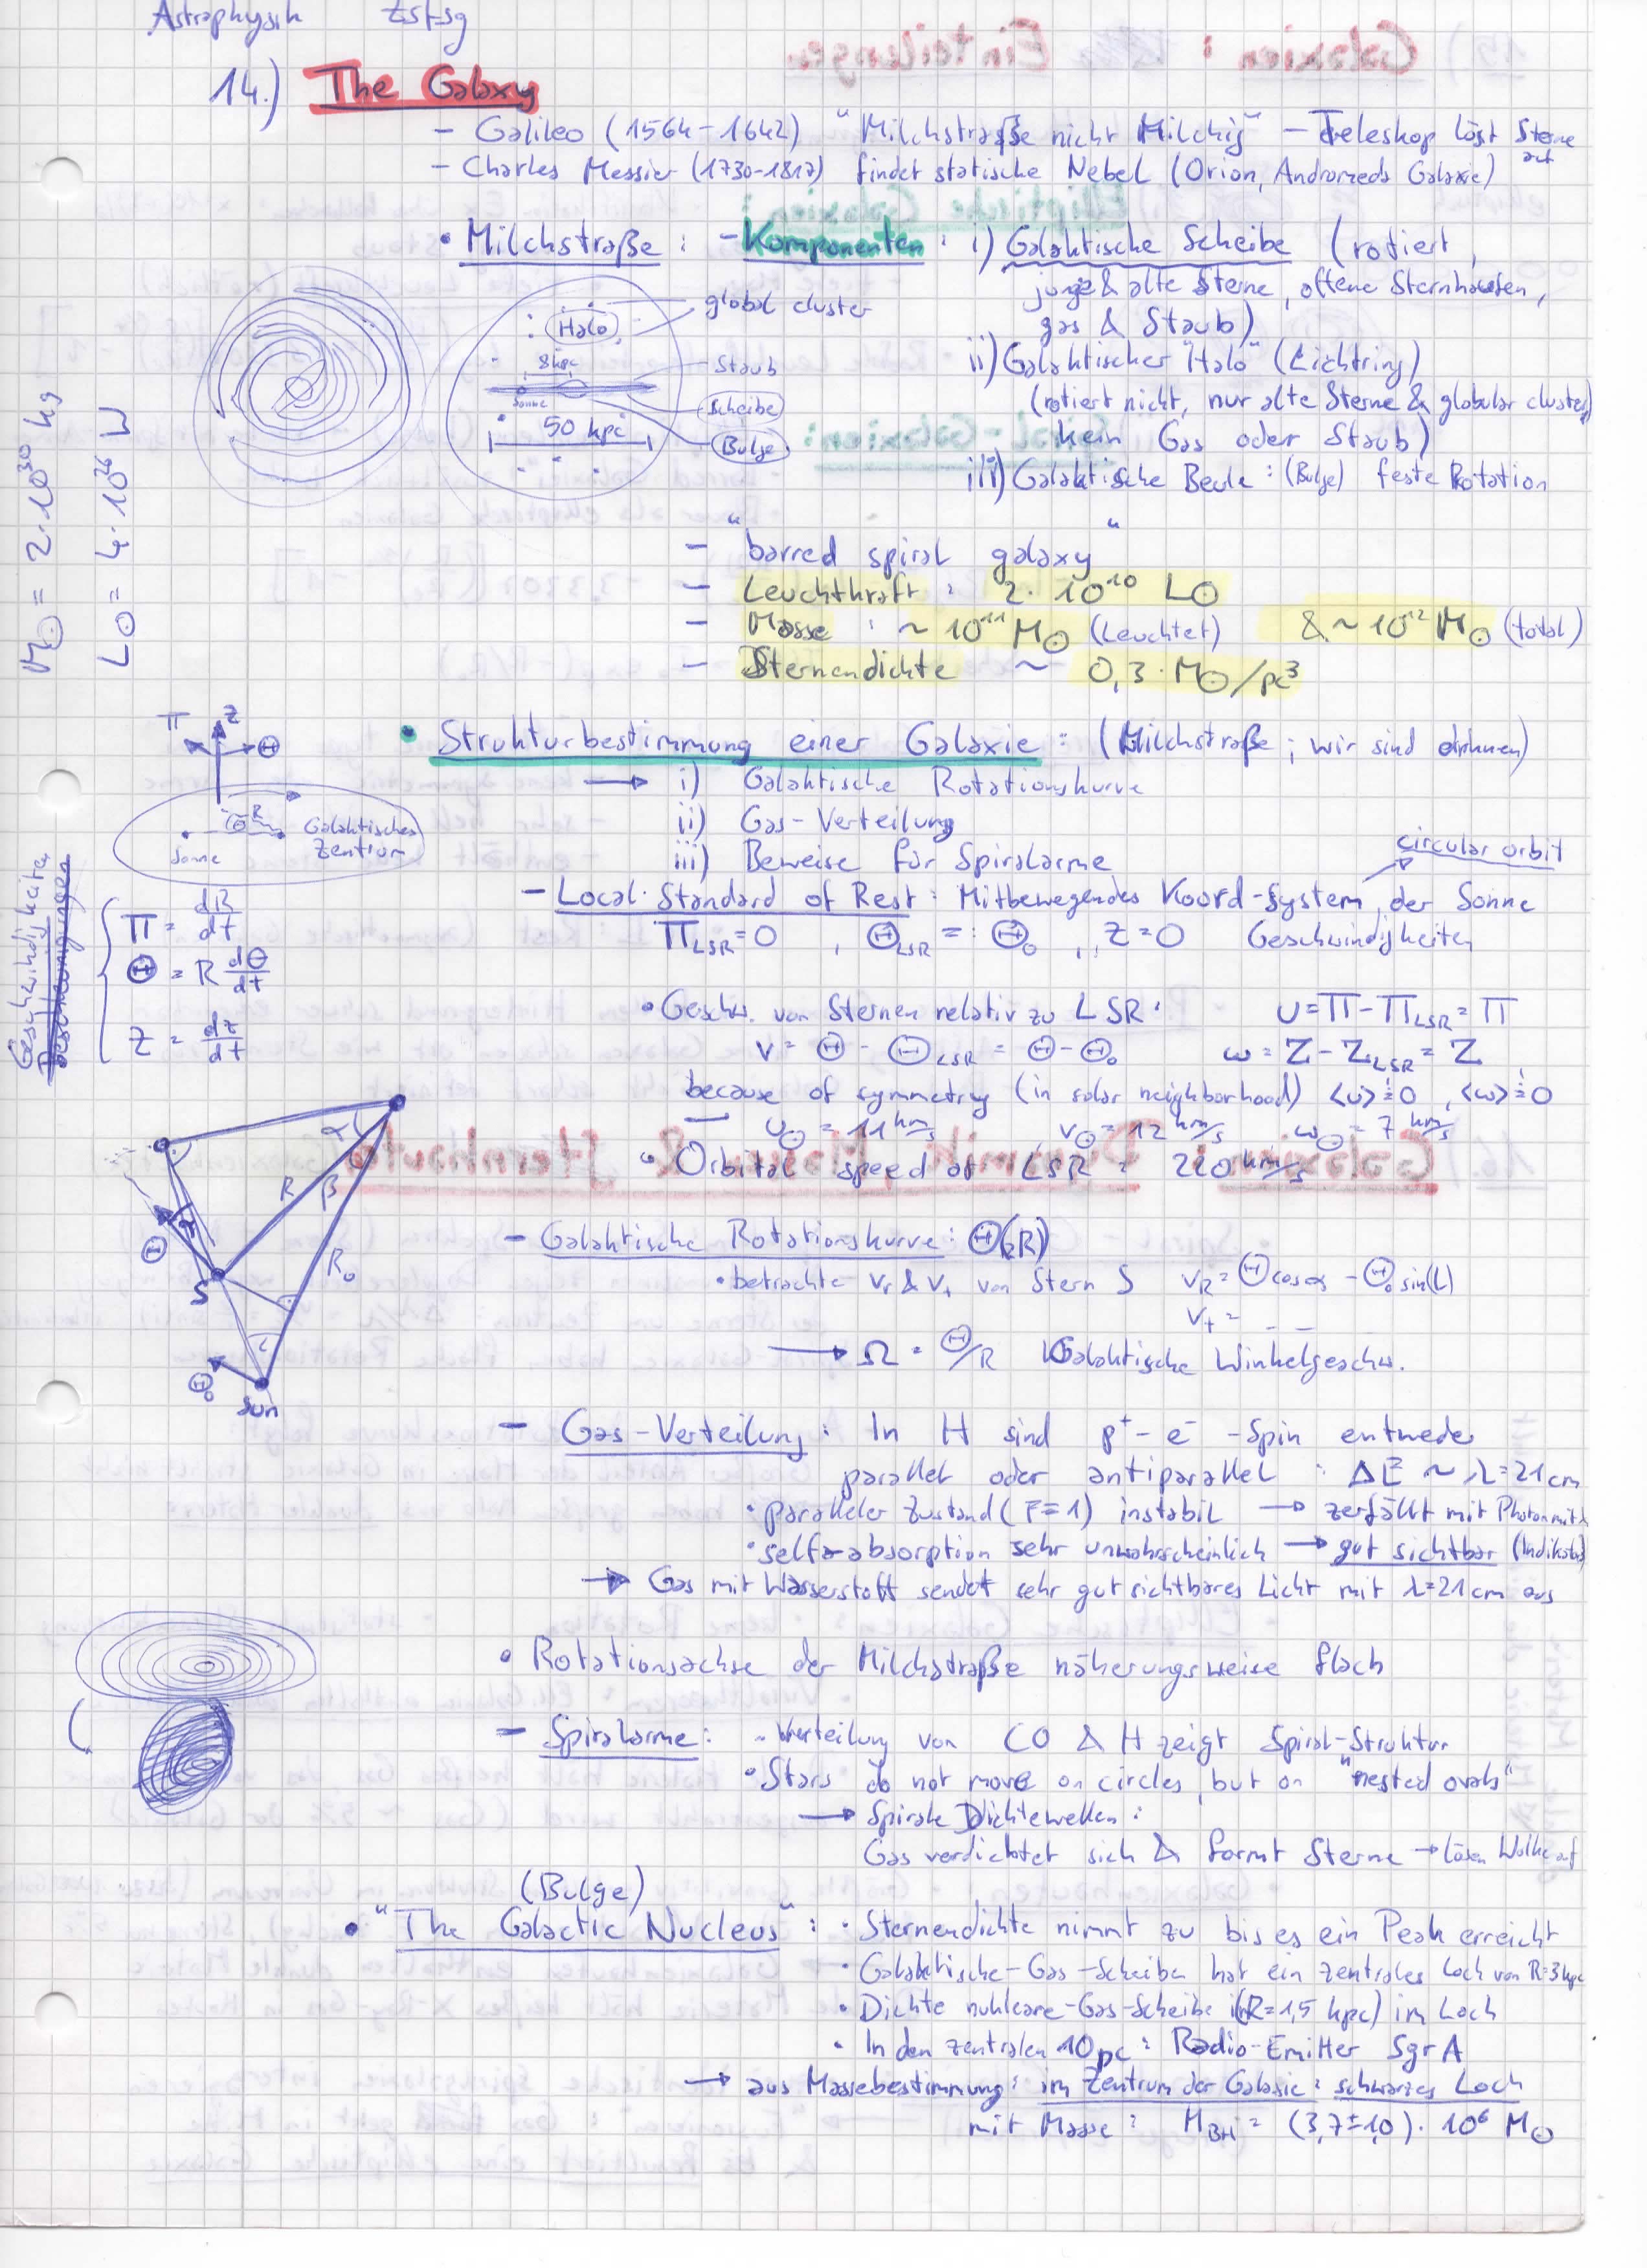 Astrophysik Zsfsg
14.) The Galaxy
- Galileo (1564-1642) "Milchstraße nicht Milchig" - Teleskop löst Sterne auf
- Charles Messier (1730-1817) findet statische Nebel (Orion, Andromeda Galaxie)
• Milchstraße : - Komponenten : i) Galaktische Scheibe (rotiert,
junge & alte Sterne, offene Sternhaufen,
gas & Staub)
ii) Galaktischer "Halo" (Lichtring)
(rotiert nicht, nur alte Sterne & globular cluster,
kein Gas oder Staub)
iii) Galaktische Beule : (Bulge) feste Rotation
global cluster
Halo
8kpc
Staub
Sonne
Scheibe
50 kpc
Bulge
M☉ = 2·10^30 kg
L☉ = 4·10^26 W
- "barred spiral galaxy"
- Leuchtkraft : 2·10^10 L☉
- Masse : ~ 10^11 M☉ (Leuchtet) & ~ 10^12 M☉ (total)
- Sternendichte ~ 0,3·M☉/pc³
Π Z Θ
R
Sonne
Galaktisches Zentrum
• Strukturbestimmung einer Galaxie : (Milchstraße ; wir sind drinnen)
→ i) Galaktische Rotationskurve
ii) Gas-Verteilung
iii) Beweise für Spiralarme
circular orbit
- Local Standard of Rest : Mitbewegendes Koord-System, der Sonne
Π_LSR = 0 , Θ_LSR =: Θ₀ , Z = 0 Geschwindigkeiten
Geschwindigkeiten
Π = dR/dt
Θ = R dθ/dt
Z = dz/dt
• Geschw. von Sternen relativ zu LSR : u = Π - Π_LSR = Π
v = Θ - Θ_LSR = Θ - Θ₀ ω = Z - Z_LSR = Z
because of symmetry (in solar neighborhood) <u> != 0 , <ω> != 0
u☉ = 11 km/s , v☉ = 12 km/s , ω☉ = 7 km/s
• Orbital speed of LSR : 220 km/s
α
R
β
R₀
Θ
α
S
L
Θ₀
Sun
- Galaktische Rotationskurve : Θ(R)
• betrachte v_r & v_t von Stern S v_R = Θ cos α - Θ₀ sin(L)
v_t = _ _
→ Ω = Θ/R Galaktische Winkelgeschw.
- Gas-Verteilung : In H sind p⁺- e⁻ -Spin entweder
parallel oder antiparallel : ΔE ~ λ=21cm
• paralleler Zustand (F=1) instabil → zerfällt mit Photon mit λ
• self-absorption sehr unwahrscheinlich → gut sichtbar (Indikator)
→ Gas mit Wasserstoff sendet sehr gut sichtbares Licht mit λ=21cm aus
• Rotationsachse der Milchstraße näherungsweise flach
- Spiralarme : • Verteilung von CO & H zeigt Spiral-Struktur
• Stars do not move on circles, but on "nested ovals"
→ Spirale Dichtewellen :
Gas verdichtet sich & formt Sterne → lösen Wolke auf
(Bulge)
• "The Galactic Nucleus" : • Sternendichte nimmt zu bis es ein Peak erreicht
• Galaktische-Gas-Scheibe hat ein zentrales Loch von R=3kpc
• Dichte nukleare-Gas-Scheibe (R=1,5 kpc) im Loch
• In den zentralen 10pc : Radio-Emitter Sgr A
→ aus Massebestimmung : im Zentrum der Galaxie : schwarzes Loch
mit Masse : M_BH = (3,7±1,0)·10⁶ M☉